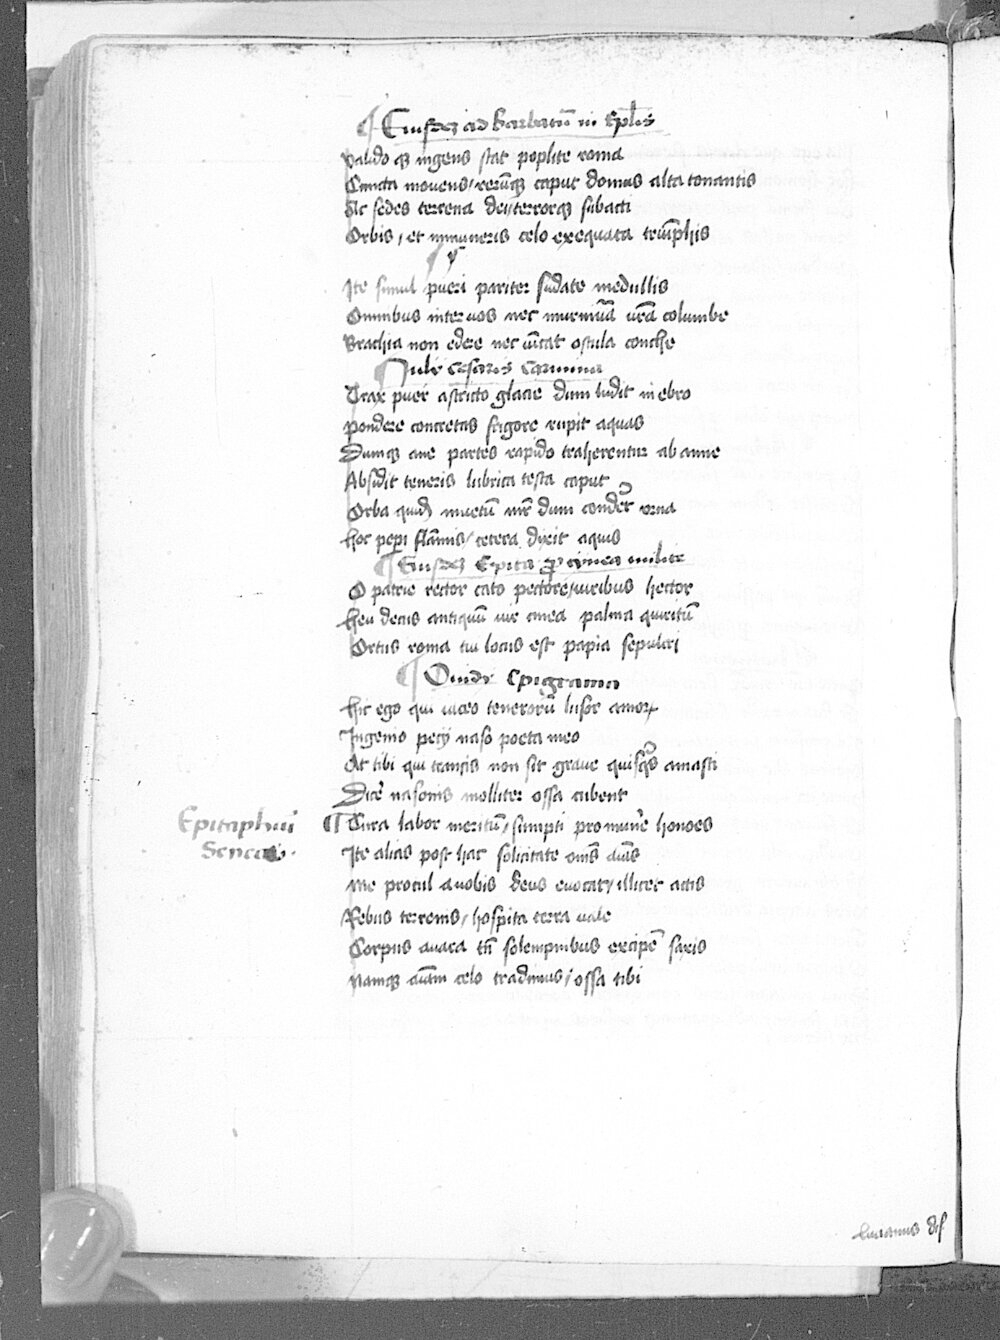 ¶ Eiusdez ad barbatū in
valido qz ingens stat poplite roma
Cuncta movens, rerūqz caput domus alta tonantis
Ac sedes terrena dei, terrorqz subacti
Orbis, et innumeris celo exequata triūphis
Ite simul pueri pariter sudate medullis
Omnibus inter vos nec murmura vrā columbe
Brachia non edere nec vīcat oscula conche
¶ Iulii cesaris carmina
Trax puer astricto glacie dum ludit in ebro
pondere concretas frigore rupit aquas
Dumqz ime partes rapido traherentur ab amne
Absidit teneris lubrica testa caput
Orba quod inuētū mr̄ dum conderet vrna
hoc peperi flāmis, cetera dixit aquis
¶ Eiusdez Epita pro milite
O patrie rector cato pectore, viribus hector
heu decus antiquū iure palma quiritū
Ortus roma tui locus est papia sepulcri
¶ Ouidii Epigrama
hic ego qui iaceo tenerorū lusor amorꝝ
Ingenio perij naso poeta meo
At tibi qui transis non sit graue quisqs amasti
Dicē nasonis molliter ossa cubent
Epitaphiū
Senece.
¶ Cura labor meritū, sumpti pro munē honoes
Ite alias post hac solicitate oīns aīas
Me procul a vobis deus euocat, illicet actis
Rebus terrenis, hospita terra vale
Corpus auara tn̄ solempnibus excipe saxis
Namqz aīam celo tradimus, ossa tibi